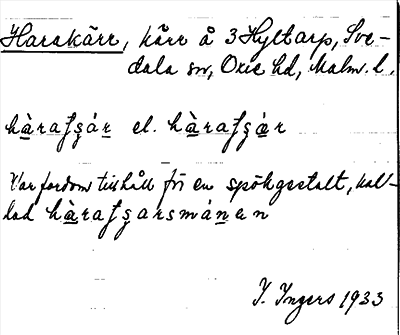 Harakärr, kärr å 3 Hyltarp, Sve-
dala sn, Oxie hd, Malm. l.
hàrafʂár el. hàrafʂár
Var fordom tillhåll för en spökgestalt, kal-
lad hàrafʂarsmánen
I. Ingers 1933